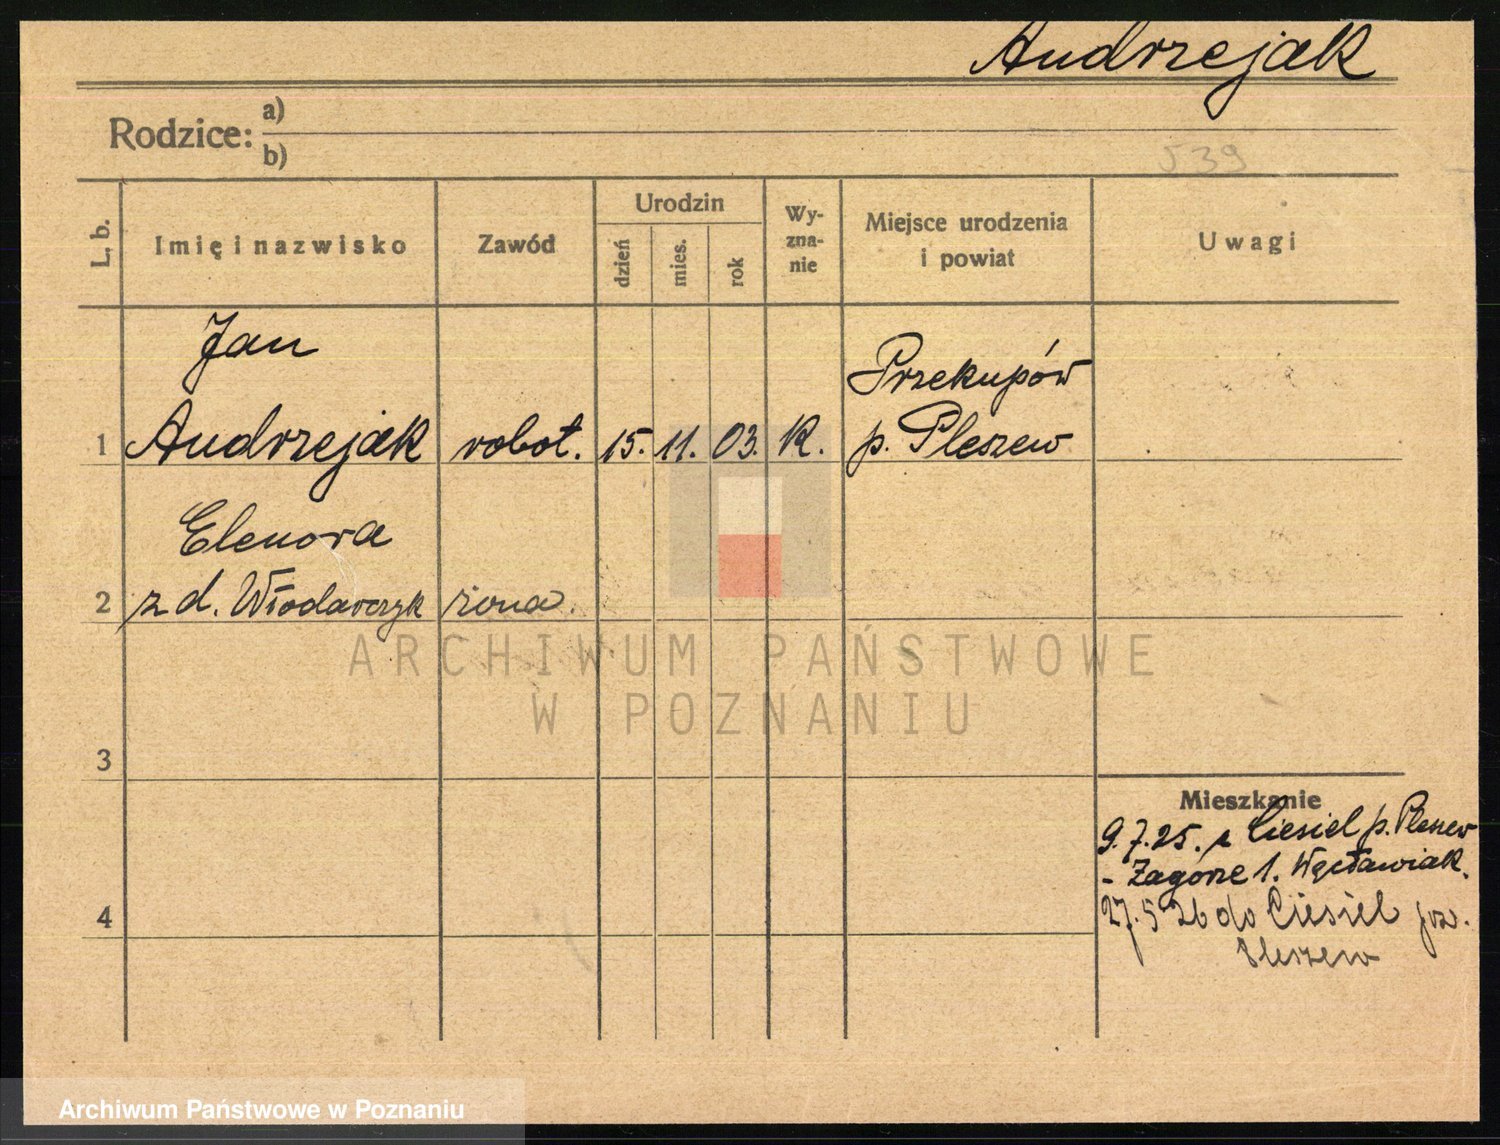 Andrzejak
Rodzice: a)
b)
539
L. b.
Imię i nazwisko
Zawód
Urodzin
dzień
mies.
rok
Wy-
zna-
nie
Miejsce urodzenia
i powiat
Uwagi
Jan
1 Andrzejak robot. 15. 11. 03. K.
Przekupów
p. Pleszew
Elenora
2 z d. Włodarczyk żona.
ARCHIWUM PAŃSTWOWE
W POZNANIU
3
4
Mieszkanie
9.7.25. z Ciesiel p. Pleszew
- Zagórze 1. Węcławiak.
27.5 26 do Ciesiel
Pleszew
Archiwum Państwowe w Poznaniu